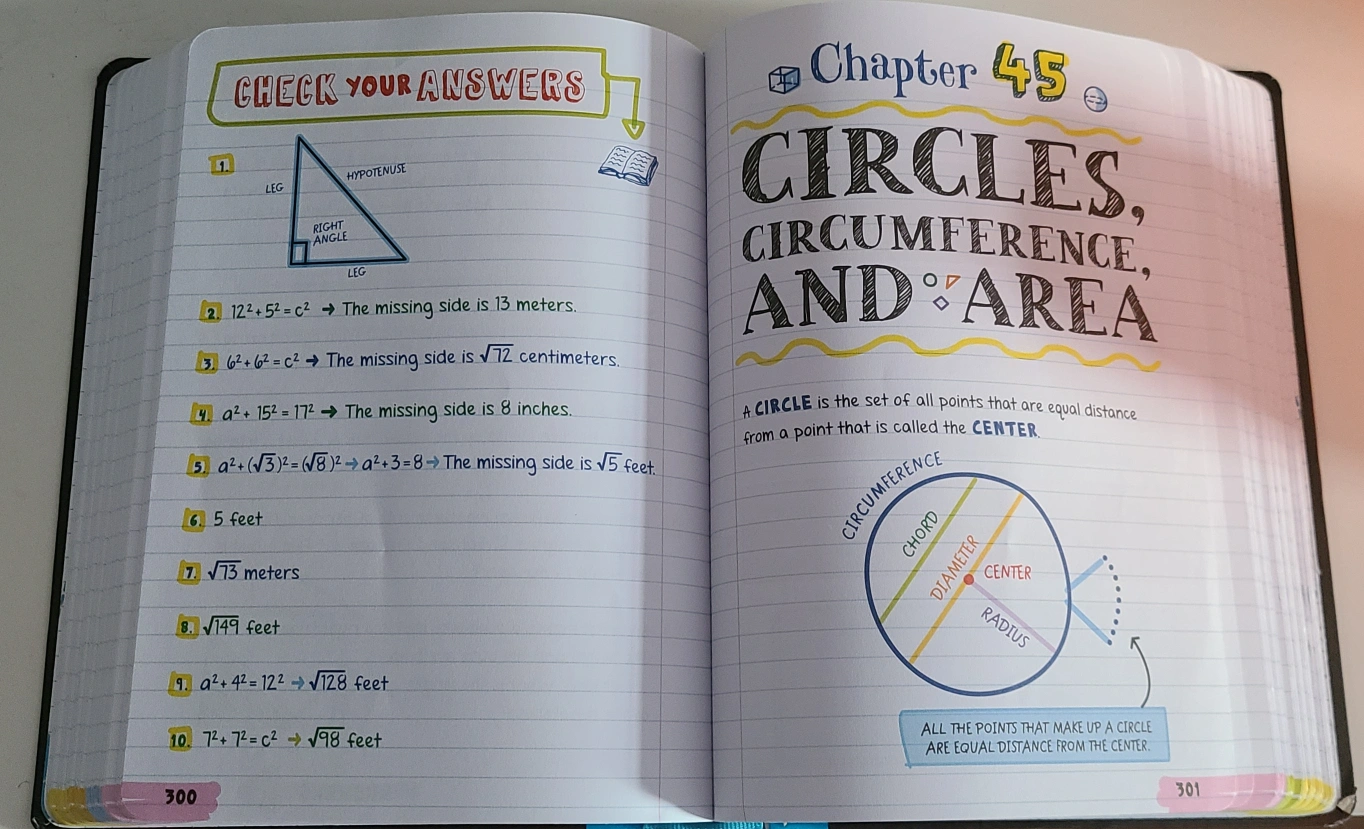 CHECK YOUR ANSWERS
1.
LEG
HYPOTENUSE
RIGHT
ANGLE
LEG
2. 12² + 5² = c² → The missing side is 13 meters.
3. 6² + 6² = c² → The missing side is √72 centimeters.
4. a² + 15² = 17² → The missing side is 8 inches.
5. a² + (√3)² = (√8)² → a² + 3 = 8 → The missing side is √5 feet.
6. 5 feet
7. √73 meters
8. √149 feet
9. a² + 4² = 12² → √128 feet
10. 7² + 7² = c² → √98 feet
300
Chapter 45
CIRCLES,
CIRCUMFERENCE,
AND AREA
A CIRCLE is the set of all points that are equal distance
from a point that is called the CENTER.
CIRCUMFERENCE
CHORD
DIAMETER
CENTER
RADIUS
ALL THE POINTS THAT MAKE UP A CIRCLE
ARE EQUAL DISTANCE FROM THE CENTER.
301